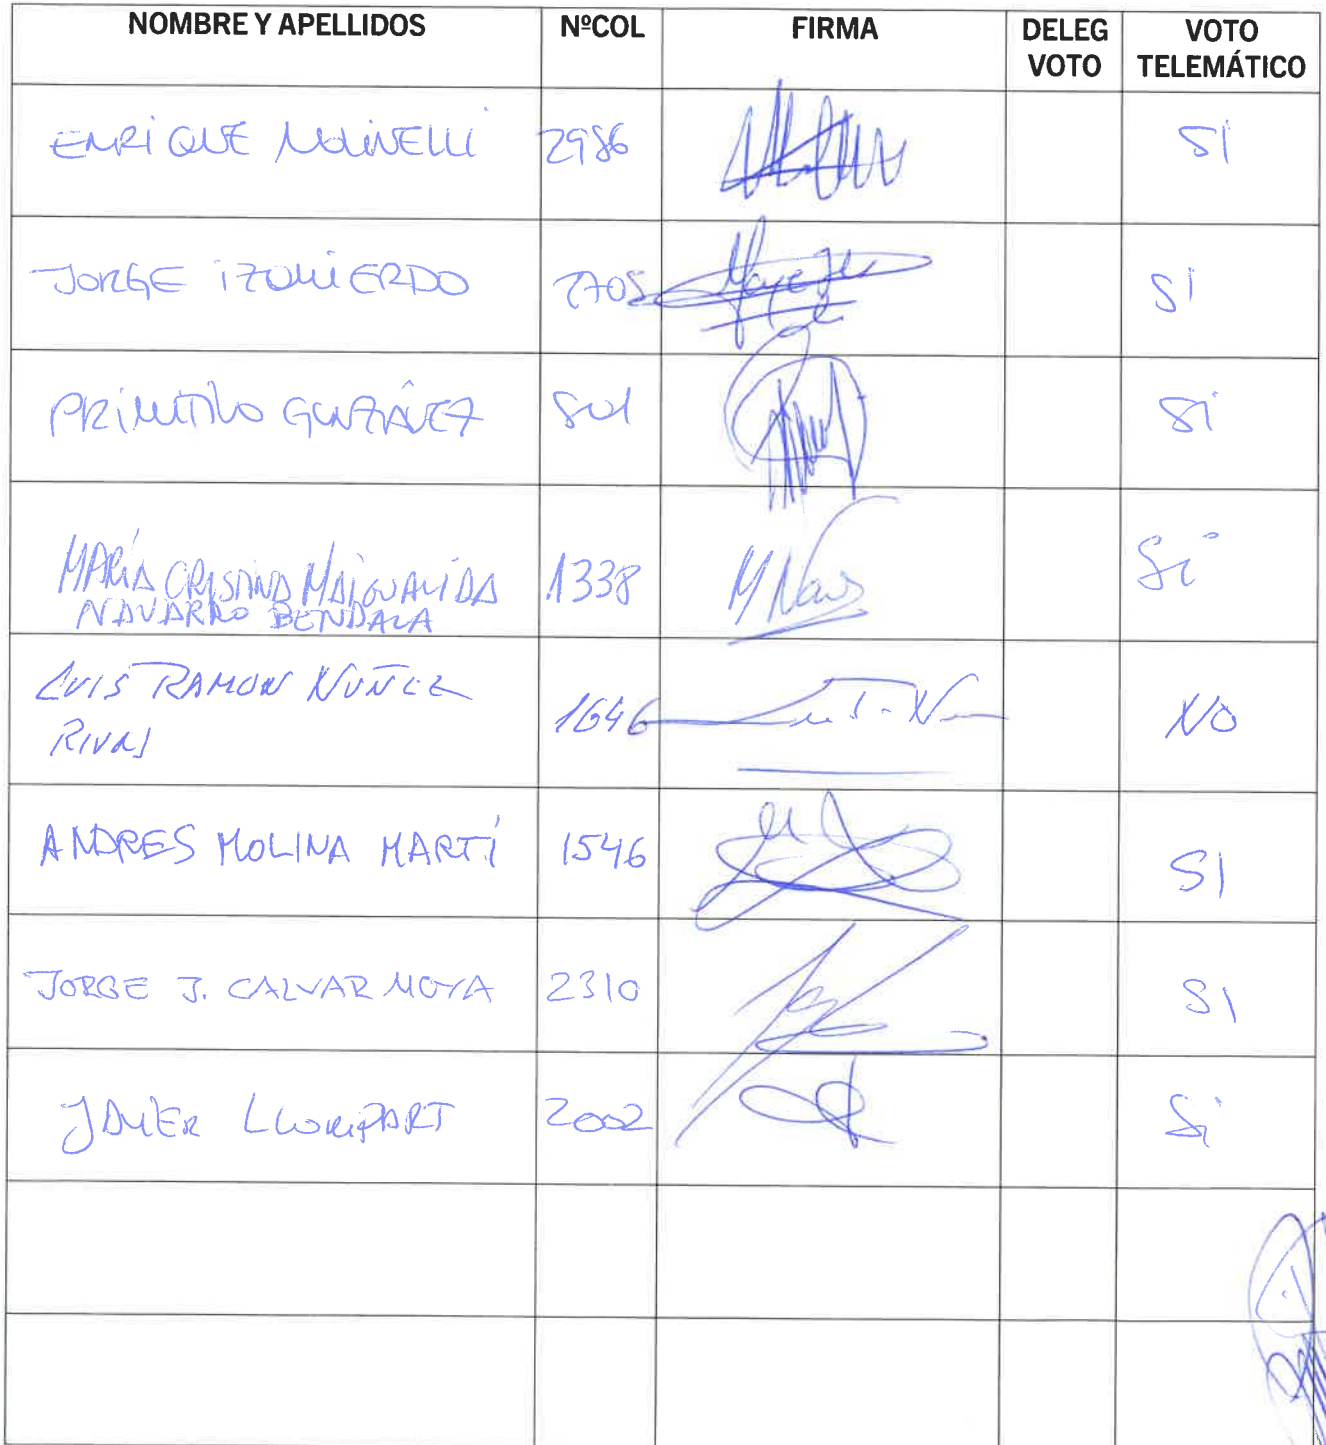 NOMBRE Y APELLIDOS NºCOL FIRMA DELEG VOTO VOTO TELEMÁTICO
ENRIQUE MOLINELLI 2986 SI
JORGE IZQUIERDO 2705 SI
PRIMITIVO GONZÁLEZ SI
MARÍA CRISTINA MAIGUALIDA 1338 SI
NAVARRO BENDALA
LUIS RAMON NUÑEZ 1646 NO
RIVAS
ANDRES MOLINA MARTÍ 1546 SI
JORGE J. CALVAR MOYA 2310 SI
JAVIER LLOMPART 2002 SI